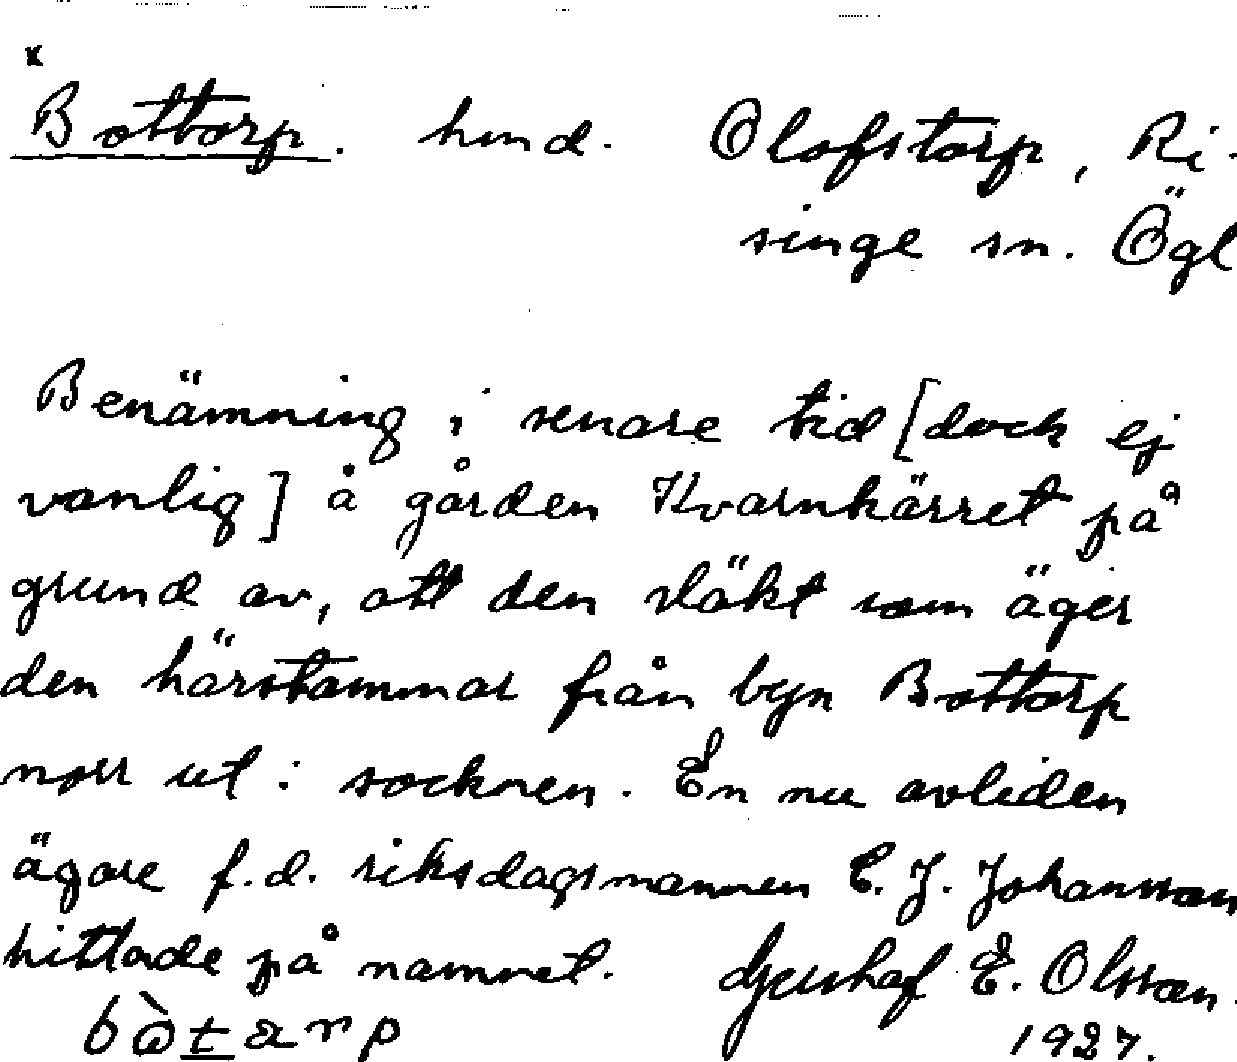 x
Bottorp. hmd. Olofstorp, Ri-
singe sn. Ögl
Benämning i senare tid [dock ej
vanlig] å gården Kvarnkärret på
grund av, att den släkt som äger
den härstammar från byn Bottorp
norr ut i socknen. En nu avliden
ägare f.d. riksdagsmannen C. J. Johansson
hittade på namnet. E. Olsson.
1927.